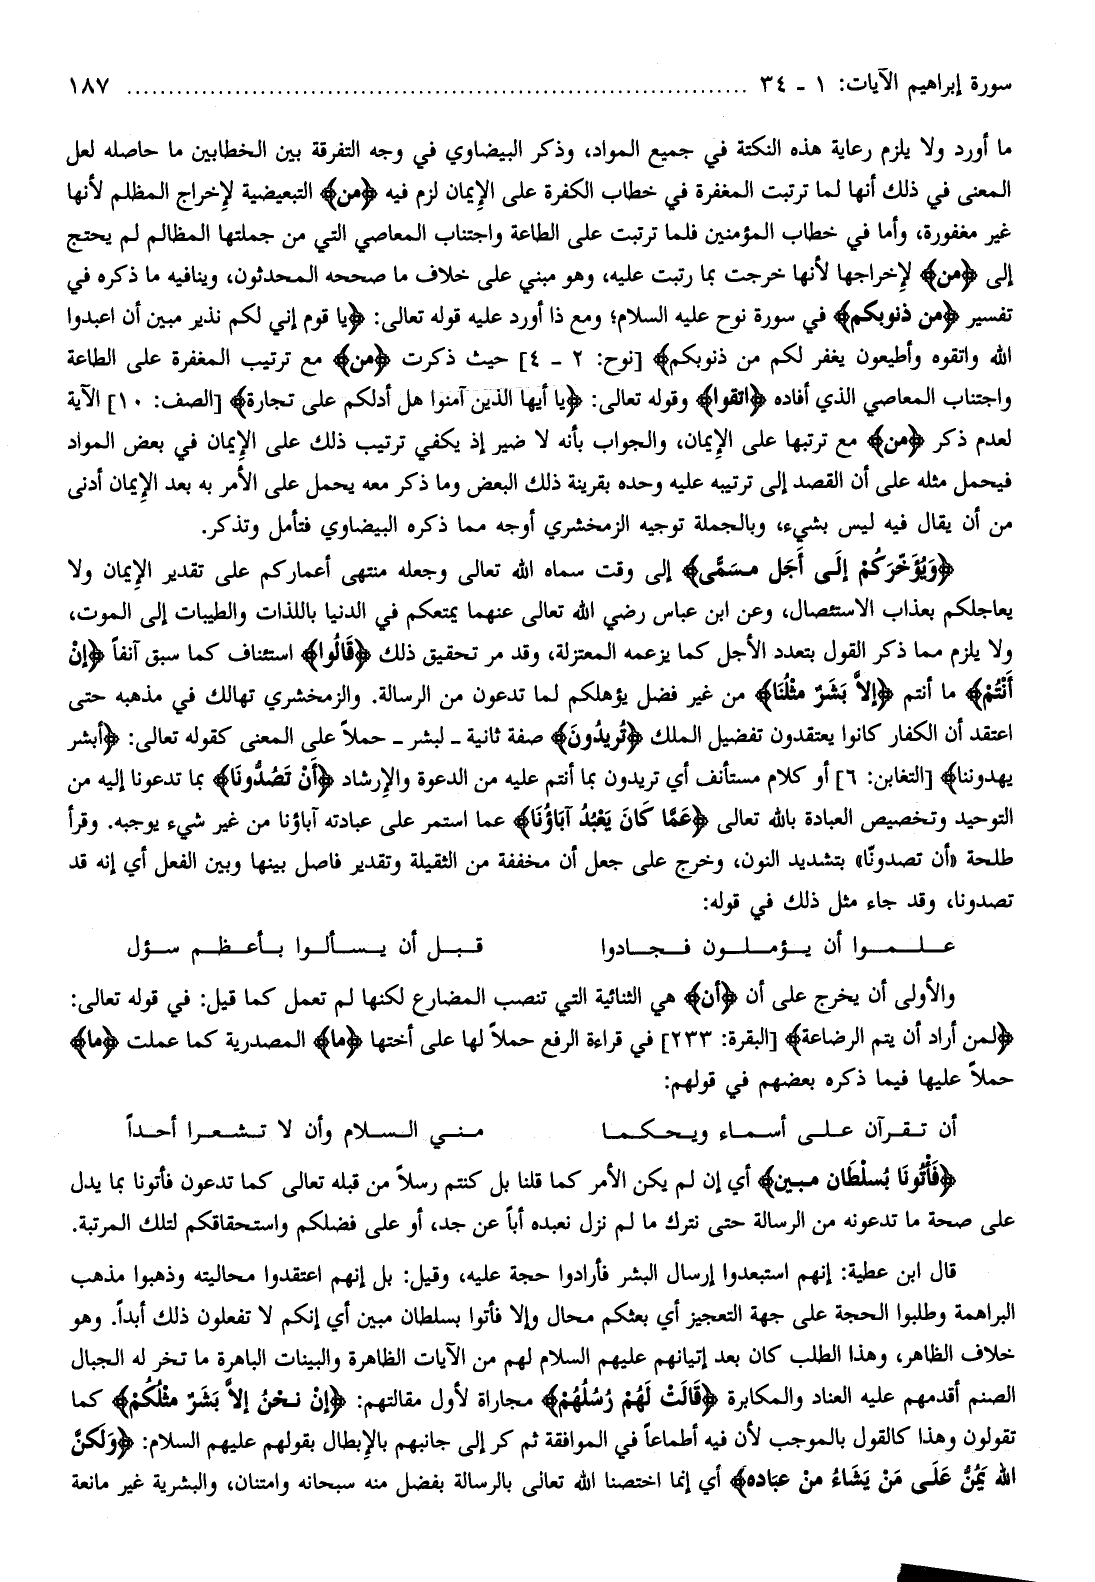 سورة إبراهيم الآيات: ١ ـ ٣٤ ........................................................................... ١٨٧
ما أورد ولا يلزم رعاية هذه النكتة في جميع المواد، وذكر البيضاوي في وجه التفرقة بين الخطابين ما حاصله لعل
المعنى في ذلك أنها لما ترتبت المغفرة في خطاب الكفرة على الإيمان لزم فيه ﴿من﴾ التبعيضية لإخراج المظلم لأنها
غير مغفورة، وأما في خطاب المؤمنين فلما ترتبت على الطاعة واجتناب المعاصي التي من جملتها المظالم لم يحتج
إلى ﴿من﴾ لإخراجها لأنها خرجت بما رتبت عليه، وهو مبني على خلاف ما صححه المحدثون، وينافيه ما ذكره في
تفسير ﴿من ذنوبكم﴾ في سورة نوح عليه السلام؛ ومع ذا أورد عليه قوله تعالى: ﴿يا قوم إني لكم نذير مبين أن اعبدوا
الله واتقوه وأطيعون يغفر لكم من ذنوبكم﴾ [نوح: ٢ ـ ٤] حيث ذكرت ﴿من﴾ مع ترتيب المغفرة على الطاعة
واجتناب المعاصي الذي أفاده ﴿اتقوا﴾ وقوله تعالى: ﴿يا أيها الذين آمنوا هل أدلكم على تجارة﴾ [الصف: ١٠] الآية
لعدم ذكر ﴿من﴾ مع ترتبها على الإيمان، والجواب بأنه لا ضير إذ يكفي ترتيب ذلك على الإيمان في بعض المواد
فيحمل مثله على أن القصد إلى ترتيبه عليه وحده بقرينة ذلك البعض وما ذكر معه يحمل على الأمر به بعد الإيمان أدنى
من أن يقال فيه ليس بشيء، وبالجملة توجيه الزمخشري أوجه مما ذكره البيضاوي فتأمل وتذكر.
﴿وَيُؤَخِّرَكُمْ إِلَى أَجَل مسَمًّى﴾ إلى وقت سماه الله تعالى وجعله منتهى أعماركم على تقدير الإيمان ولا
يعاجلكم بعذاب الاستئصال، وعن ابن عباس رضي الله تعالى عنهما يمتعكم في الدنيا باللذات والطيبات إلى الموت،
ولا يلزم مما ذكر القول بتعدد الأجل كما يزعمه المعتزلة، وقد مر تحقيق ذلك ﴿قَالُوا﴾ استئناف كما سبق آنفاً ﴿إنْ
أَنْتُمْ﴾ ما أنتم ﴿إلاَّ بَشَرٌ مثْلُنَا﴾ من غير فضل يؤهلكم لما تدعون من الرسالة. والزمخشري تهالك في مذهبه حتى
اعتقد أن الكفار كانوا يعتقدون تفضيل الملك ﴿تُريدُونَ﴾ صفة ثانية ـ لبشر ـ حملاً على المعنى كقوله تعالى: ﴿أبشر
يهدوننا﴾ [التغابن: ٦] أو كلام مستأنف أي تريدون بما أنتم عليه من الدعوة والإرشاد ﴿أَنْ تَصُدُّونَا﴾ بما تدعونا إليه من
التوحيد وتخصيص العبادة بالله تعالى ﴿عَمَّا كَانَ يَعْبُدُ آبَاؤُنَا﴾ عما استمر على عبادته آباؤنا من غير شيء يوجبه. وقرأ
طلحة «أن تصدونّا» بتشديد النون، وخرج على جعل أن مخففة من الثقيلة وتقدير فاصل بينها وبين الفعل أي إنه قد
تصدونا، وقد جاء مثل ذلك في قوله:
علموا أن يؤملون فجادوا    قبل أن يسألوا بأعظم سؤل
والأولى أن يخرج على أن ﴿أن﴾ هي الثنائية التي تنصب المضارع لكنها لم تعمل كما قيل: في قوله تعالى:
﴿لمن أراد أن يتم الرضاعة﴾ [البقرة: ٢٣٣] في قراءة الرفع حملاً لها على أختها ﴿ما﴾ المصدرية كما عملت ﴿ما﴾
حملاً عليها فيما ذكره بعضهم في قولهم:
أن تقرآن على أسماء ويحكما    مني السلام وأن لا تشعرا أحداً
﴿فَأْتُونَا بُسلْطَان مبين﴾ أي إن لم يكن الأمر كما قلنا بل كنتم رسلاً من قبله تعالى كما تدعون فأتونا بما يدل
على صحة ما تدعونه من الرسالة حتى نترك ما لم نزل نعبده أباً عن جد، أو على فضلكم واستحقاقكم لتلك المرتبة.
قال ابن عطية: إنهم استبعدوا إرسال البشر فأرادوا حجة عليه، وقيل: بل إنهم اعتقدوا محاليته وذهبوا مذهب
البراهمة وطلبوا الحجة على جهة التعجيز أي بعثكم محال وإلا فأتوا بسلطان مبين أي إنكم لا تفعلون ذلك أبداً. وهو
خلاف الظاهر، وهذا الطلب كان بعد إتيانهم عليهم السلام لهم من الآيات الظاهرة والبينات الباهرة ما تخر له الجبال
الصنم أقدمهم عليه العناد والمكابرة ﴿قَالَتْ لَهُمْ رُسُلُهُمْ﴾ مجاراة لأول مقالتهم: ﴿إنْ نحْنُ إلاَّ بَشَرٌ مثْلُكُمْ﴾ كما
تقولون وهذا كالقول بالموجب لأن فيه أطماعاً في الموافقة ثم كر إلى جانبهم بالإبطال بقولهم عليهم السلام: ﴿وَلَكنَّ
الله يَمُنُّ عَلَى مَنْ يَشَاءُ منْ عبَاده﴾ أي إنما اختصنا الله تعالى بالرسالة بفضل منه سبحانه وامتنان، والبشرية غير مانعة